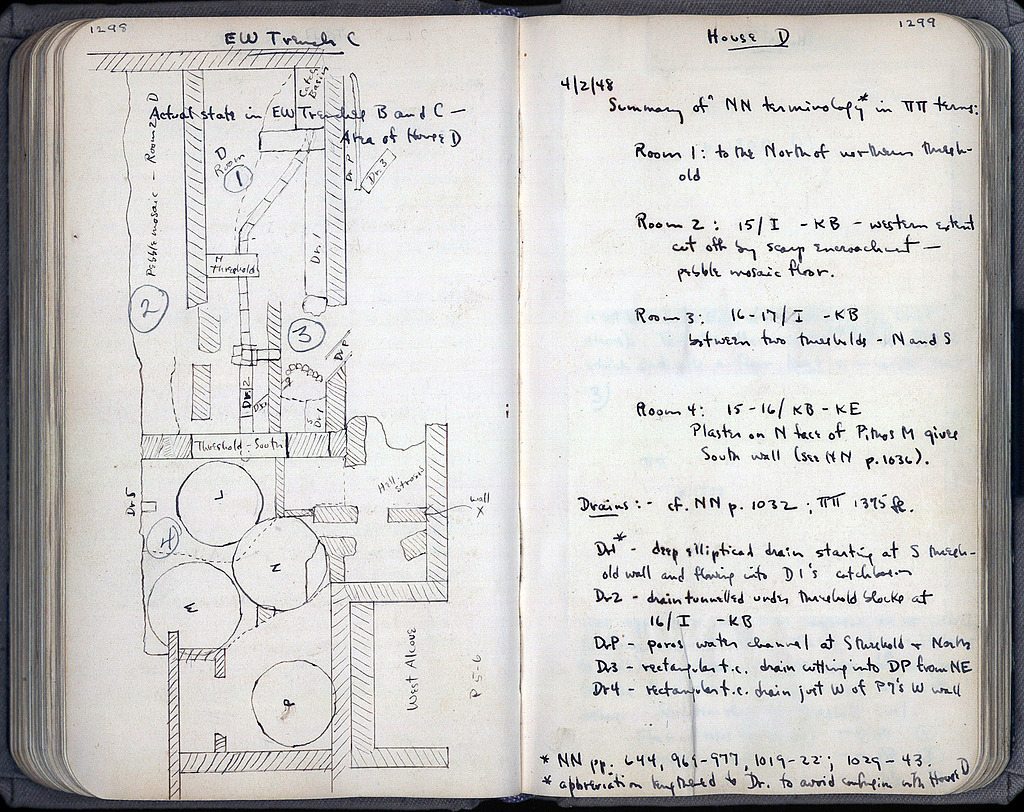 1298
EW Trench C
Actual state in EW Trenches B and C –
Area of House D
Catch
Basin
Pebble mosaic – Room D
D
Room
1
Dr. P
Dr. 3
Dr. 1
N
threshold
2
3
Dr. P
Dr. 2
Dr. 1
Dr. 1
Threshold – South
Hill
stroses
wall
X
Dr. 5
L
4
N
M
P
West Alcove
P 5-6
1299
House D
4/2/48
Summary of NN terminology* in ΠΠ terms:
Room 1: to the North of northern thresh-
old
Room 2: 15/I - KB – western extent
cut off by scarp encroachment –
pebble mosaic floor.
Room 3: 16-17/I - KB
between two thresholds - N and S
Room 4: 15-16/KB - KE
Plaster on N face of Pithos M gives
South wall (see NN p. 1036).
Drains:- cf. NN p. 1032; ΠΠ 1375 ff.
Dr1* - deep elliptical drain starting at S thresh-
old wall and flowing into D1's catchbasin
Dr2 - drain tunnelled under threshold blocks at
16/I - KB
DrP - poros water channel at S threshold + North
Dr3 - rectangular t.c. drain cutting into DP from NE
Dr4 - rectangular t.c. drain just W of P7's W wall
* NN pp. 644, 969-977, 1019-22; 1029-43.
* abbreviation lengthened to Dr. to avoid confusion with House D